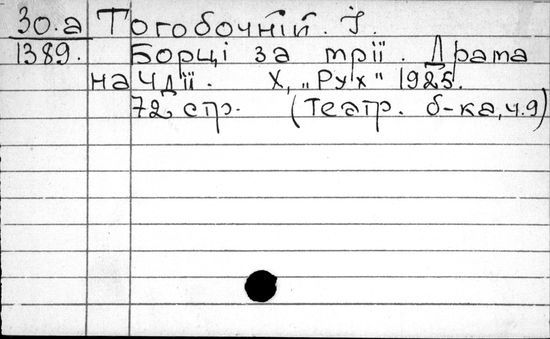 30.а Тогобочній. І.
1389. Борці за мрії. Драма
на 4 дії. Х, „Рух" 1925.
72 стр. (Театр. б-ка, ч.9)